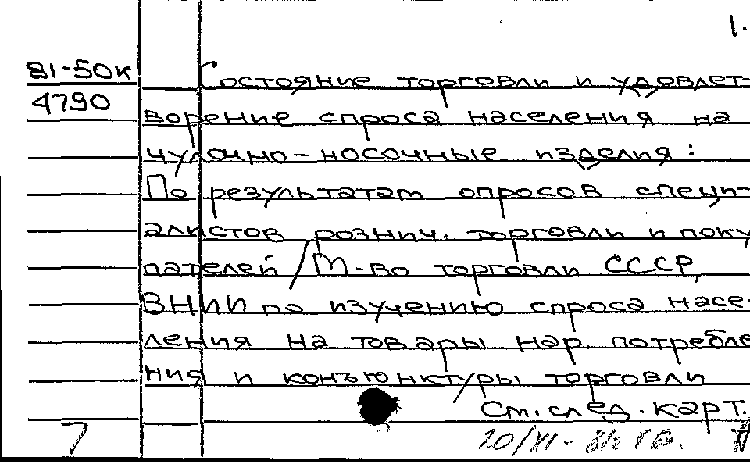 1.
81-50к Состояние торговли и удовлет-
4790 ворение спроса населения на
чулочно-носочные изделия:
По результатам опросов специ-
алистов рознич. торговли и поку
пателей / М-во торговли СССР,
ВНИИ по изучению спроса насе-
ления на товары нар. потребле
ния и конъюнктуры торговли
См. след. карт.
7